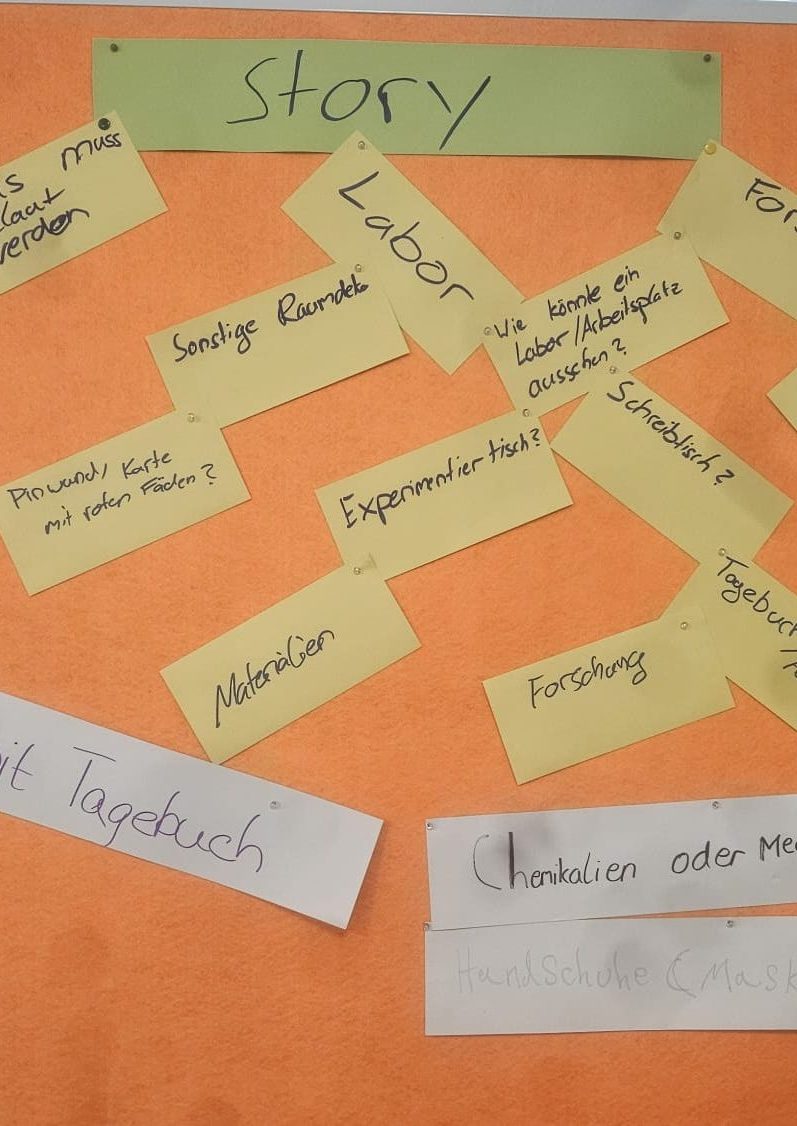 Story
muss
werden
Labor
For
Sonstige Raumdeko
Wie könnte ein
Labor/Arbeitsplatz
aussehen?
Schreibtisch?
Pinwand/Karte
mit roten Fäden?
Experimentiertisch?
Tagebuch
Materialien
Forschung
mit Tagebuch
Chemikalien oder Me
Handschuhe (Mask